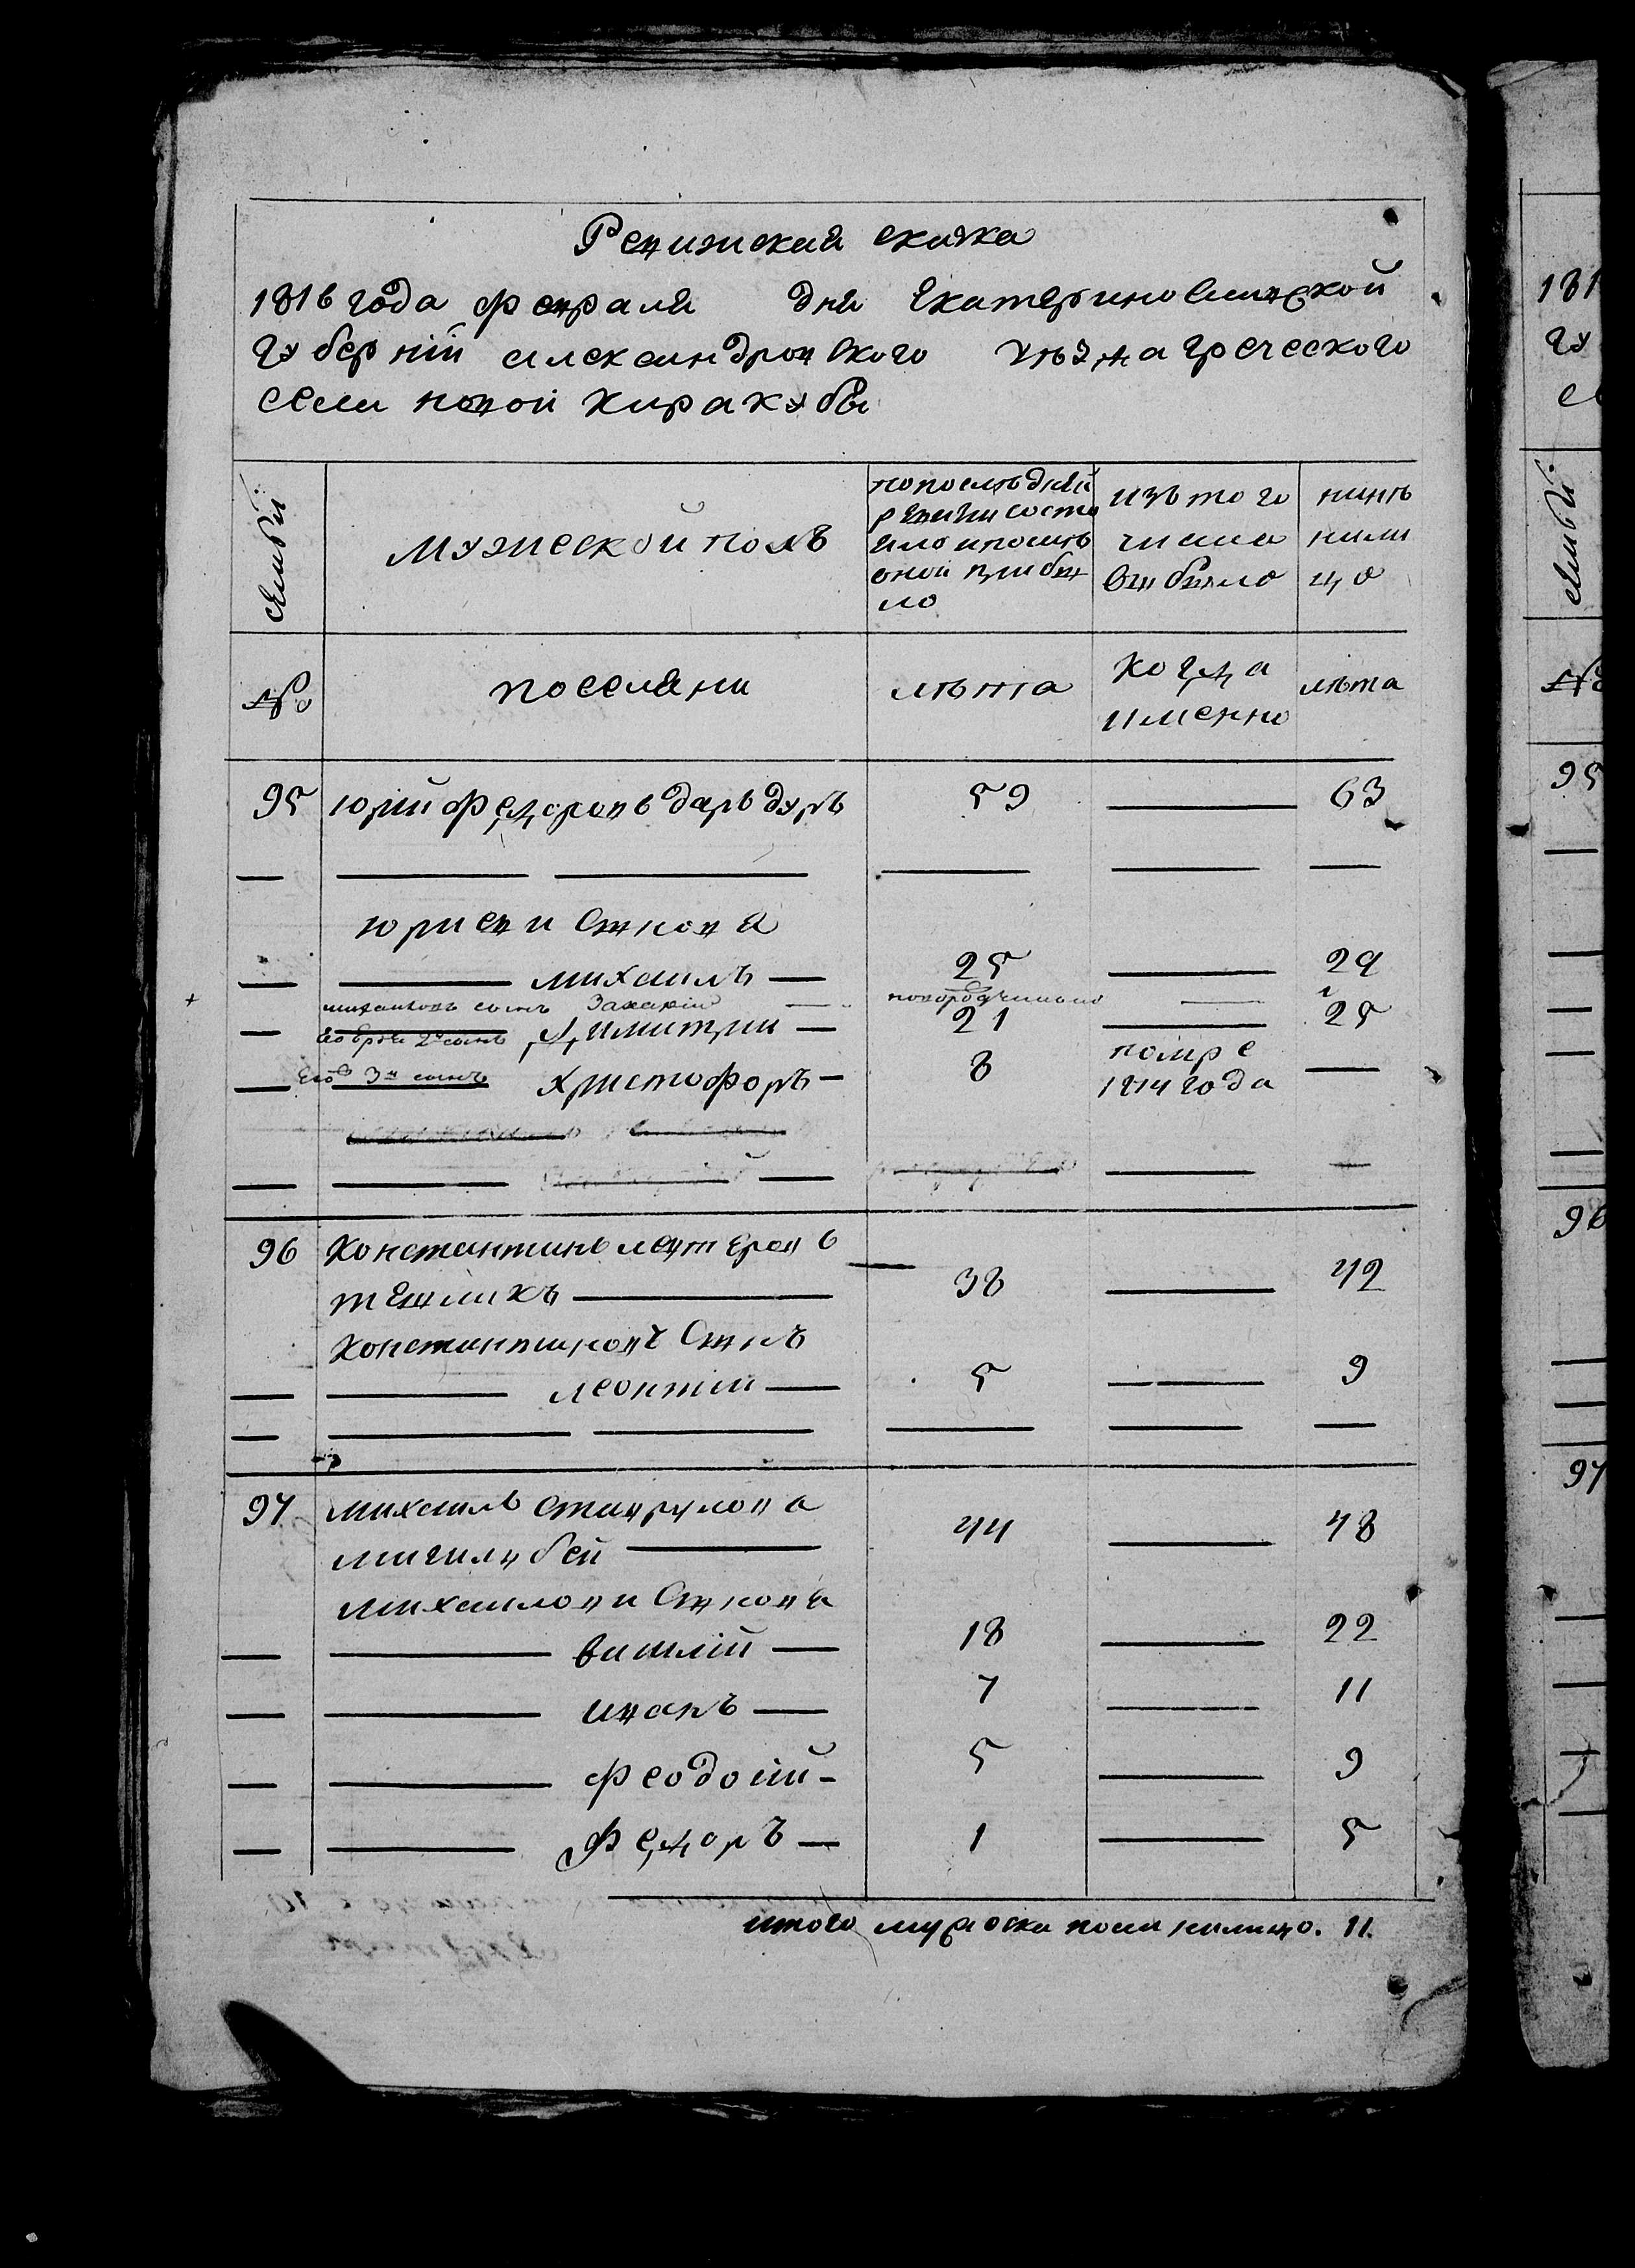 Ревижская скажа
1816 года февраля дня Екатеринославской
губерніи александровского уѣзда греческого
села новой каракубы
семьи
мужеской полъ
попослѣдней
ревизіи состо
яло ипослѣ
оной прибы
ло
изъ того
числа
выбыло
нинѣ
нали
цо
№
поселяни
лѣта
когда
именно
лѣта
95 юрій федоровъ даръ дуръ 59 — 63
юриеви Сынова
михаилъ — 25 — 29
михаиловъ сынъ Захарій — новорожденной —
Его Юрія 2й сынъ димитрии — 21 — 25
Его 3й сынъ христофоръ — 8 помре 1814 года —
96 Константинъ левтеровъ
тевликъ 38 — 42
Константиновъ Сынъ
леонтіи — 5 — 9
97 михаилъ ставрулова
мигилибей 44 — 48
михаилови Сынова
василій — 18 — 22
иванъ — 7 — 11
феодосій - 5 — 9
Федоръ — 1 — 5
итого мужеска пола налицо. 11.
181
гу
се
семьи
№
95
96
97